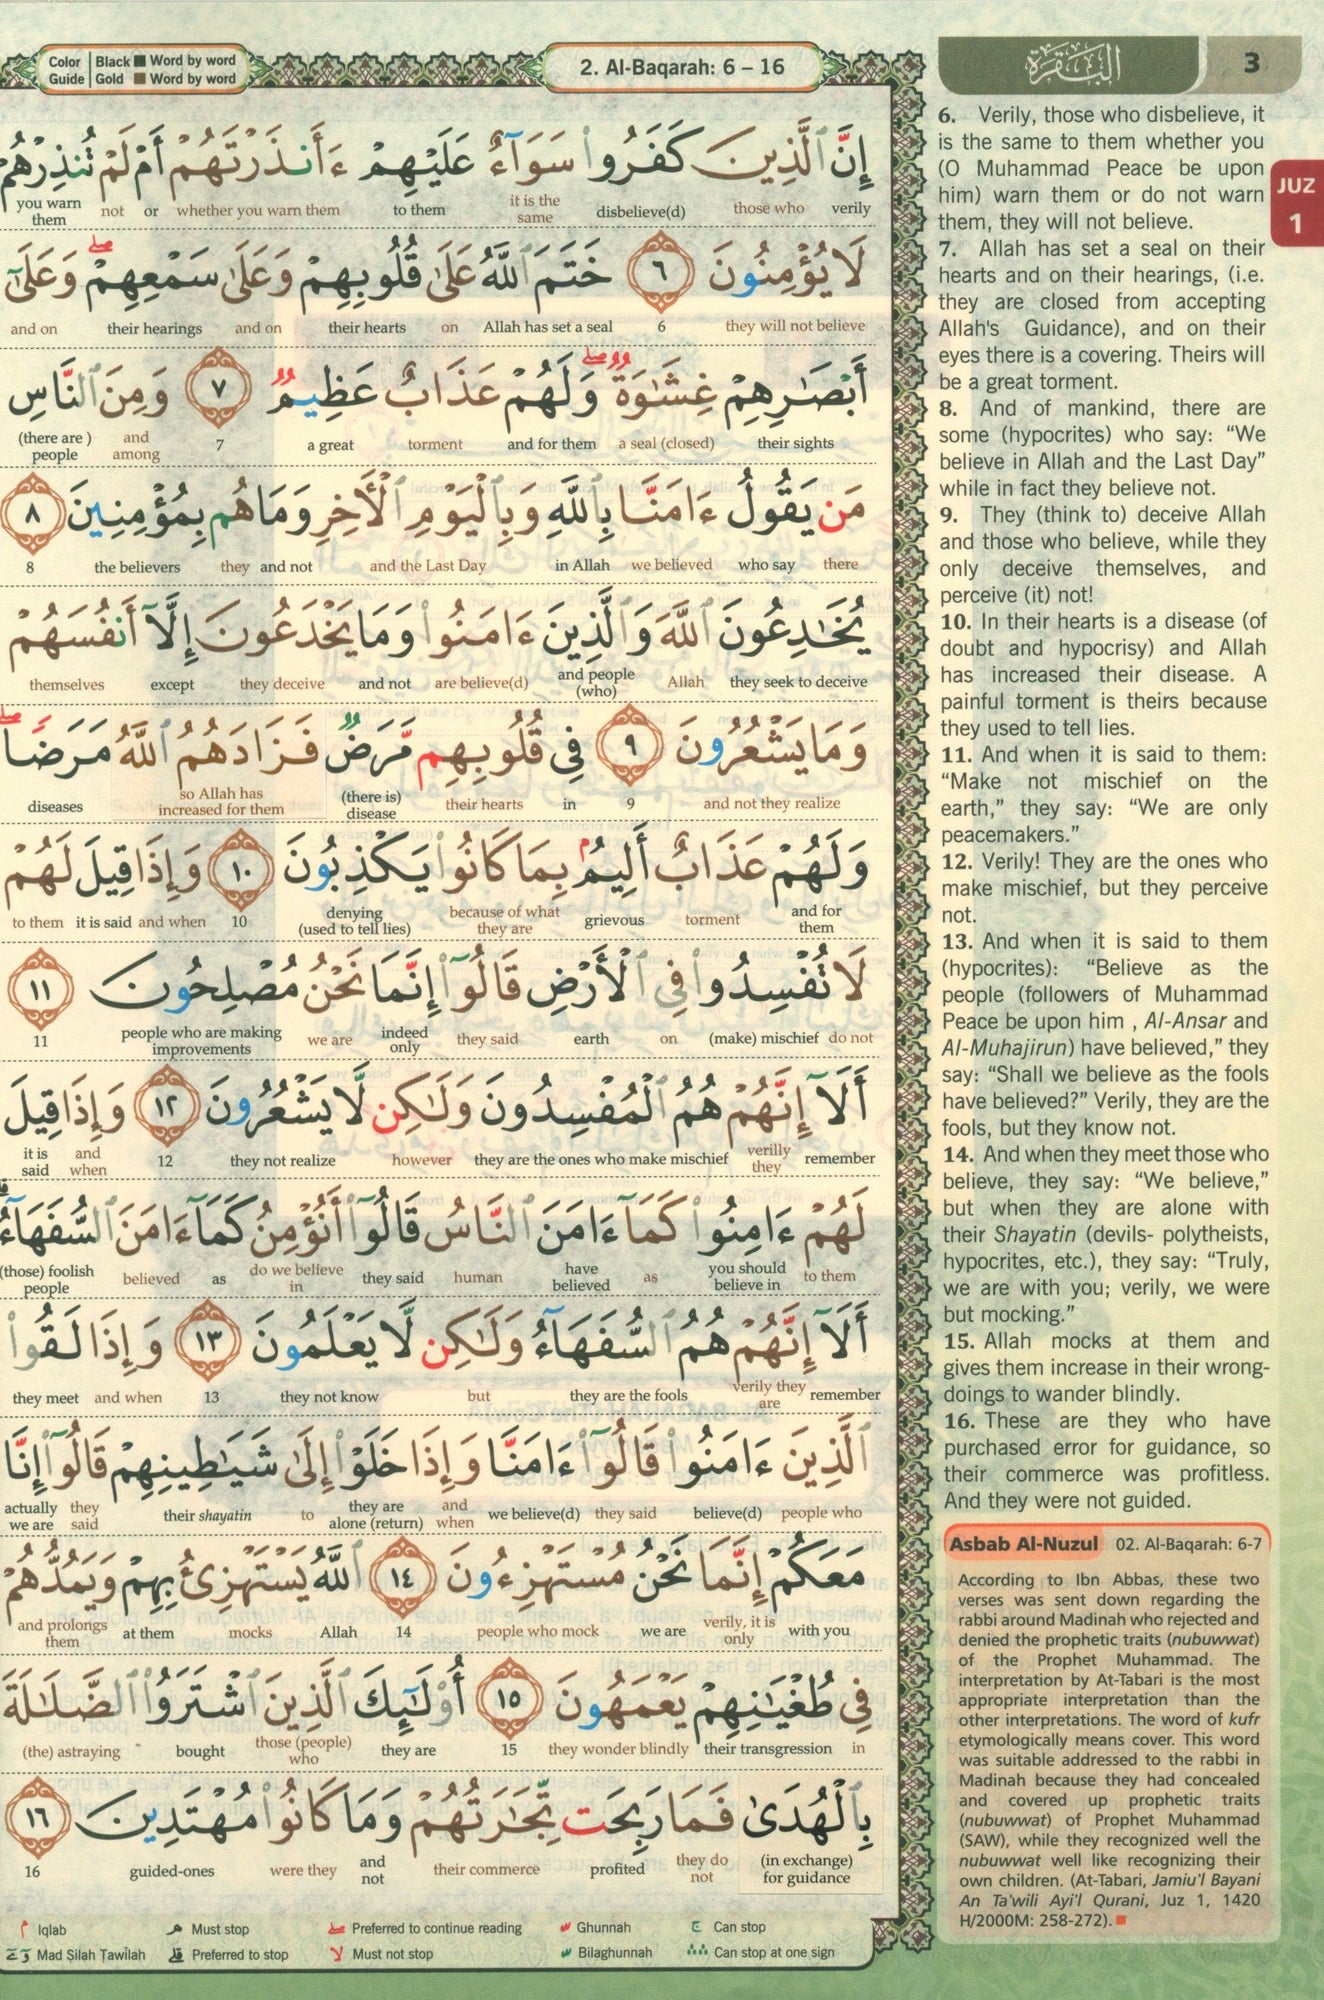 Color Guide | Black ■ Word by word
Gold ■ Word by word
2. Al-Baqarah: 6 – 16
البقرة
3
JUZ
1
إِنَّ ٱلَّذِينَ كَفَرُوا۟ سَوَآءٌ عَلَيْهِمْ ءَأَنذَرْتَهُمْ أَمْ لَمْ تُنذِرْهُمْ
verily those who disbelieve(d) it is the same to them whether you warn them or not you warn them
لَا يُؤْمِنُونَ ٦ خَتَمَ ٱللَّهُ عَلَىٰ قُلُوبِهِمْ وَعَلَىٰ سَمْعِهِمْ ۖ وَعَلَىٰٓ
they will not believe 6 Allah has set a seal on their hearts and on their hearings and on
أَبْصَـٰرِهِمْ غِشَـٰوَةٌ ۖ وَلَهُمْ عَذَابٌ عَظِيمٌ ٧ وَمِنَ ٱلنَّاسِ
their sights a seal (closed) and for them torment a great 7 and among (there are ) people
مَن يَقُولُ ءَامَنَّا بِٱللَّهِ وَبِٱلْيَوْمِ ٱلْأَخِرِ وَمَا هُم بِمُؤْمِنِينَ ٨
there who say we believed in Allah and the Last Day and not they the believers 8
يُخَـٰدِعُونَ ٱللَّهَ وَٱلَّذِينَ ءَامَنُوا۟ وَمَا يَخْدَعُونَ إِلَّآ أَنفُسَهُمْ
they seek to deceive Allah and people (who) are believe(d) and not they deceive except themselves
وَمَا يَشْعُرُونَ ٩ فِى قُلُوبِهِم مَّرَضٌ فَزَادَهُمُ ٱللَّهُ مَرَضًا ۖ
and not they realize 9 in their hearts (there is) disease so Allah has increased for them diseases
وَلَهُمْ عَذَابٌ أَلِيمٌۢ بِمَا كَانُوا۟ يَكْذِبُونَ ١٠ وَإِذَا قِيلَ لَهُمْ
and for them torment grievous because of what they are denying (used to tell lies) 10 and when it is said to them
لَا تُفْسِدُوا۟ فِى ٱلْأَرْضِ قَالُوٓا۟ إِنَّمَا نَحْنُ مُصْلِحُونَ ١١
do not (make) mischief on earth they said indeed only we are people who are making improvements 11
أَلَآ إِنَّهُمْ هُمُ ٱلْمُفْسِدُونَ وَلَـٰكِن لَّا يَشْعُرُونَ ١٢ وَإِذَا قِيلَ
remember verilly they they are the ones who make mischief however they not realize 12 and when it is said
لَهُمْ ءَامِنُوا۟ كَمَآ ءَامَنَ ٱلنَّاسُ قَالُوٓا۟ أَنُؤْمِنُ كَمَآ ءَامَنَ ٱلسُّفَهَآءُ ۗ
to them you should believe in as have believed human they said do we believe in as believed (those) foolish people
أَلَآ إِنَّهُمْ هُمُ ٱلسُّفَهَآءُ وَلَـٰكِن لَّا يَعْلَمُونَ ١٣ وَإِذَا لَقُوا۟
remember verily they are they are the fools but they not know 13 and when they meet
ٱلَّذِينَ ءَامَنُوا۟ قَالُوٓا۟ ءَامَنَّا وَإِذَا خَلَوْا۟ إِلَىٰ شَيَـٰطِينِهِمْ قَالُوٓا۟ إِنَّا
people who believe(d) they said we believe(d) and when they are alone (return) to their shayatin they said actually we are
مَعَكُمْ إِنَّمَا نَحْنُ مُسْتَهْزِءُونَ ١٤ ٱللَّهُ يَسْتَهْزِئُ بِهِمْ وَيَمُدُّهُمْ
with you verily, it is only we are people who mock 14 Allah mocks at them and prolongs them
فِى طُغْيَـٰنِهِمْ يَعْمَهُونَ ١٥ أُو۟لَـٰٓئِكَ ٱلَّذِينَ ٱشْتَرَوُا۟ ٱلضَّلَـٰلَةَ
in their transgression they wonder blindly 15 they are those (people) who bought (the) astraying
بِٱلْهُدَىٰ فَمَا رَبِحَت تِّجَـٰرَتُهُمْ وَمَا كَانُوا۟ مُهْتَدِينَ ١٦
(in exchange) for guidance they do not profited their commerce and not were they guided-ones 16
Iqlab
Must stop
Preferred to continue reading
Ghunnah
Can stop
Mad Silah Tawilah
Preferred to stop
Must not stop
Bilaghunnah
Can stop at one sign
6. Verily, those who disbelieve, it
is the same to them whether you
(O Muhammad Peace be upon
him) warn them or do not warn
them, they will not believe.
7. Allah has set a seal on their
hearts and on their hearings, (i.e.
they are closed from accepting
Allah's Guidance), and on their
eyes there is a covering. Theirs will
be a great torment.
8. And of mankind, there are
some (hypocrites) who say: “We
believe in Allah and the Last Day”
while in fact they believe not.
9. They (think to) deceive Allah
and those who believe, while they
only deceive themselves, and
perceive (it) not!
10. In their hearts is a disease (of
doubt and hypocrisy) and Allah
has increased their disease. A
painful torment is theirs because
they used to tell lies.
11. And when it is said to them:
“Make not mischief on the
earth,” they say: “We are only
peacemakers.”
12. Verily! They are the ones who
make mischief, but they perceive
not.
13. And when it is said to them
(hypocrites): “Believe as the
people (followers of Muhammad
Peace be upon him , Al-Ansar and
Al-Muhajirun) have believed,” they
say: “Shall we believe as the fools
have believed?” Verily, they are the
fools, but they know not.
14. And when they meet those who
believe, they say: “We believe,”
but when they are alone with
their Shayatin (devils- polytheists,
hypocrites, etc.), they say: “Truly,
we are with you; verily, we were
but mocking.”
15. Allah mocks at them and
gives them increase in their wrong-
doings to wander blindly.
16. These are they who have
purchased error for guidance, so
their commerce was profitless.
And they were not guided.
Asbab Al-Nuzul 02. Al-Baqarah: 6-7
According to Ibn Abbas, these two
verses was sent down regarding the
rabbi around Madinah who rejected and
denied the prophetic traits (nubuwwat)
of the Prophet Muhammad. The
interpretation by At-Tabari is the most
appropriate interpretation than the
other interpretations. The word of kufr
etymologically means cover. This word
was suitable addressed to the rabbi in
Madinah because they had concealed
and covered up prophetic traits
(nubuwwat) of Prophet Muhammad
(SAW), while they recognized well the
nubuwwat well like recognizing their
own children. (At-Tabari, Jamiu'l Bayani
An Ta'wili Ayi'l Qurani, Juz 1, 1420
H/2000M: 258-272).